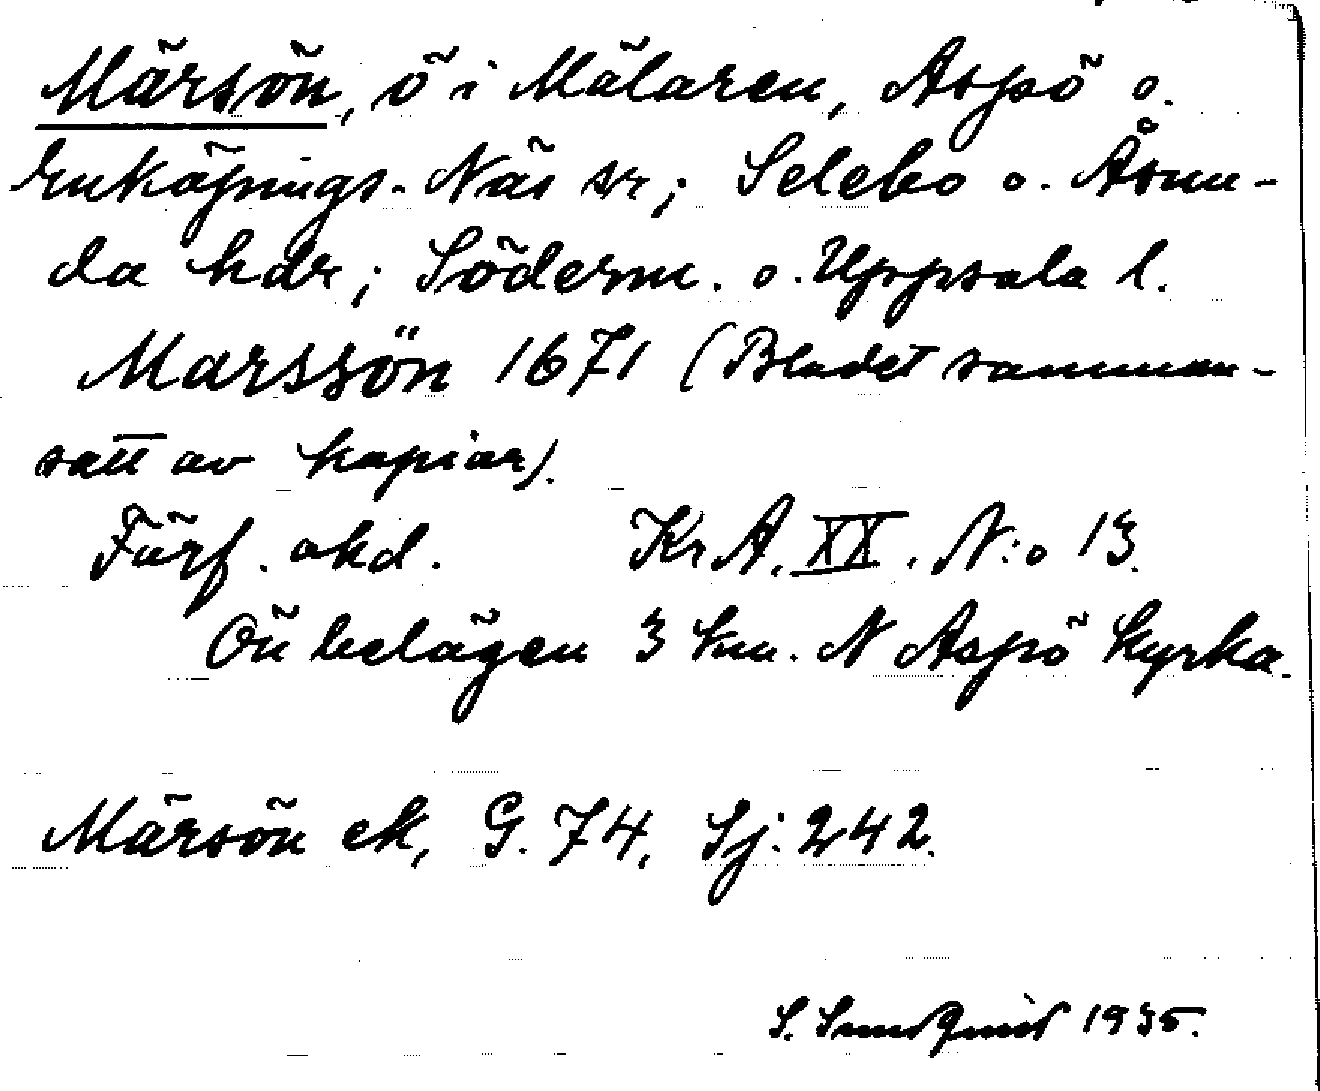 Märsön, ö i Mälaren, Aspö o.
Enköpings-Näs sr; Selebo o. Åsun-
da hdr; Söderm. o. Uppsala l.
Marssön 1671 (Bladet samman-
satt av kopior).
Förf. okd. Kr A. XX. N:o 13.
Ön belägen 3 km. N Aspö kyrka.
Märsön ek, G. 74, Sj: 242.
S. Sundquist 1935.